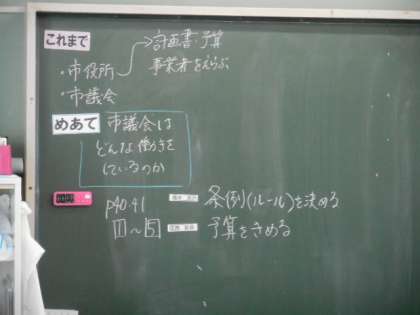 これまで
→計画書・予算
・市役所
事業者をえらぶ
・市議会
めあて
市議会は
どんな働きを
しているのか
p40.41
条例(ルール)を決める
1～5
予算をきめる